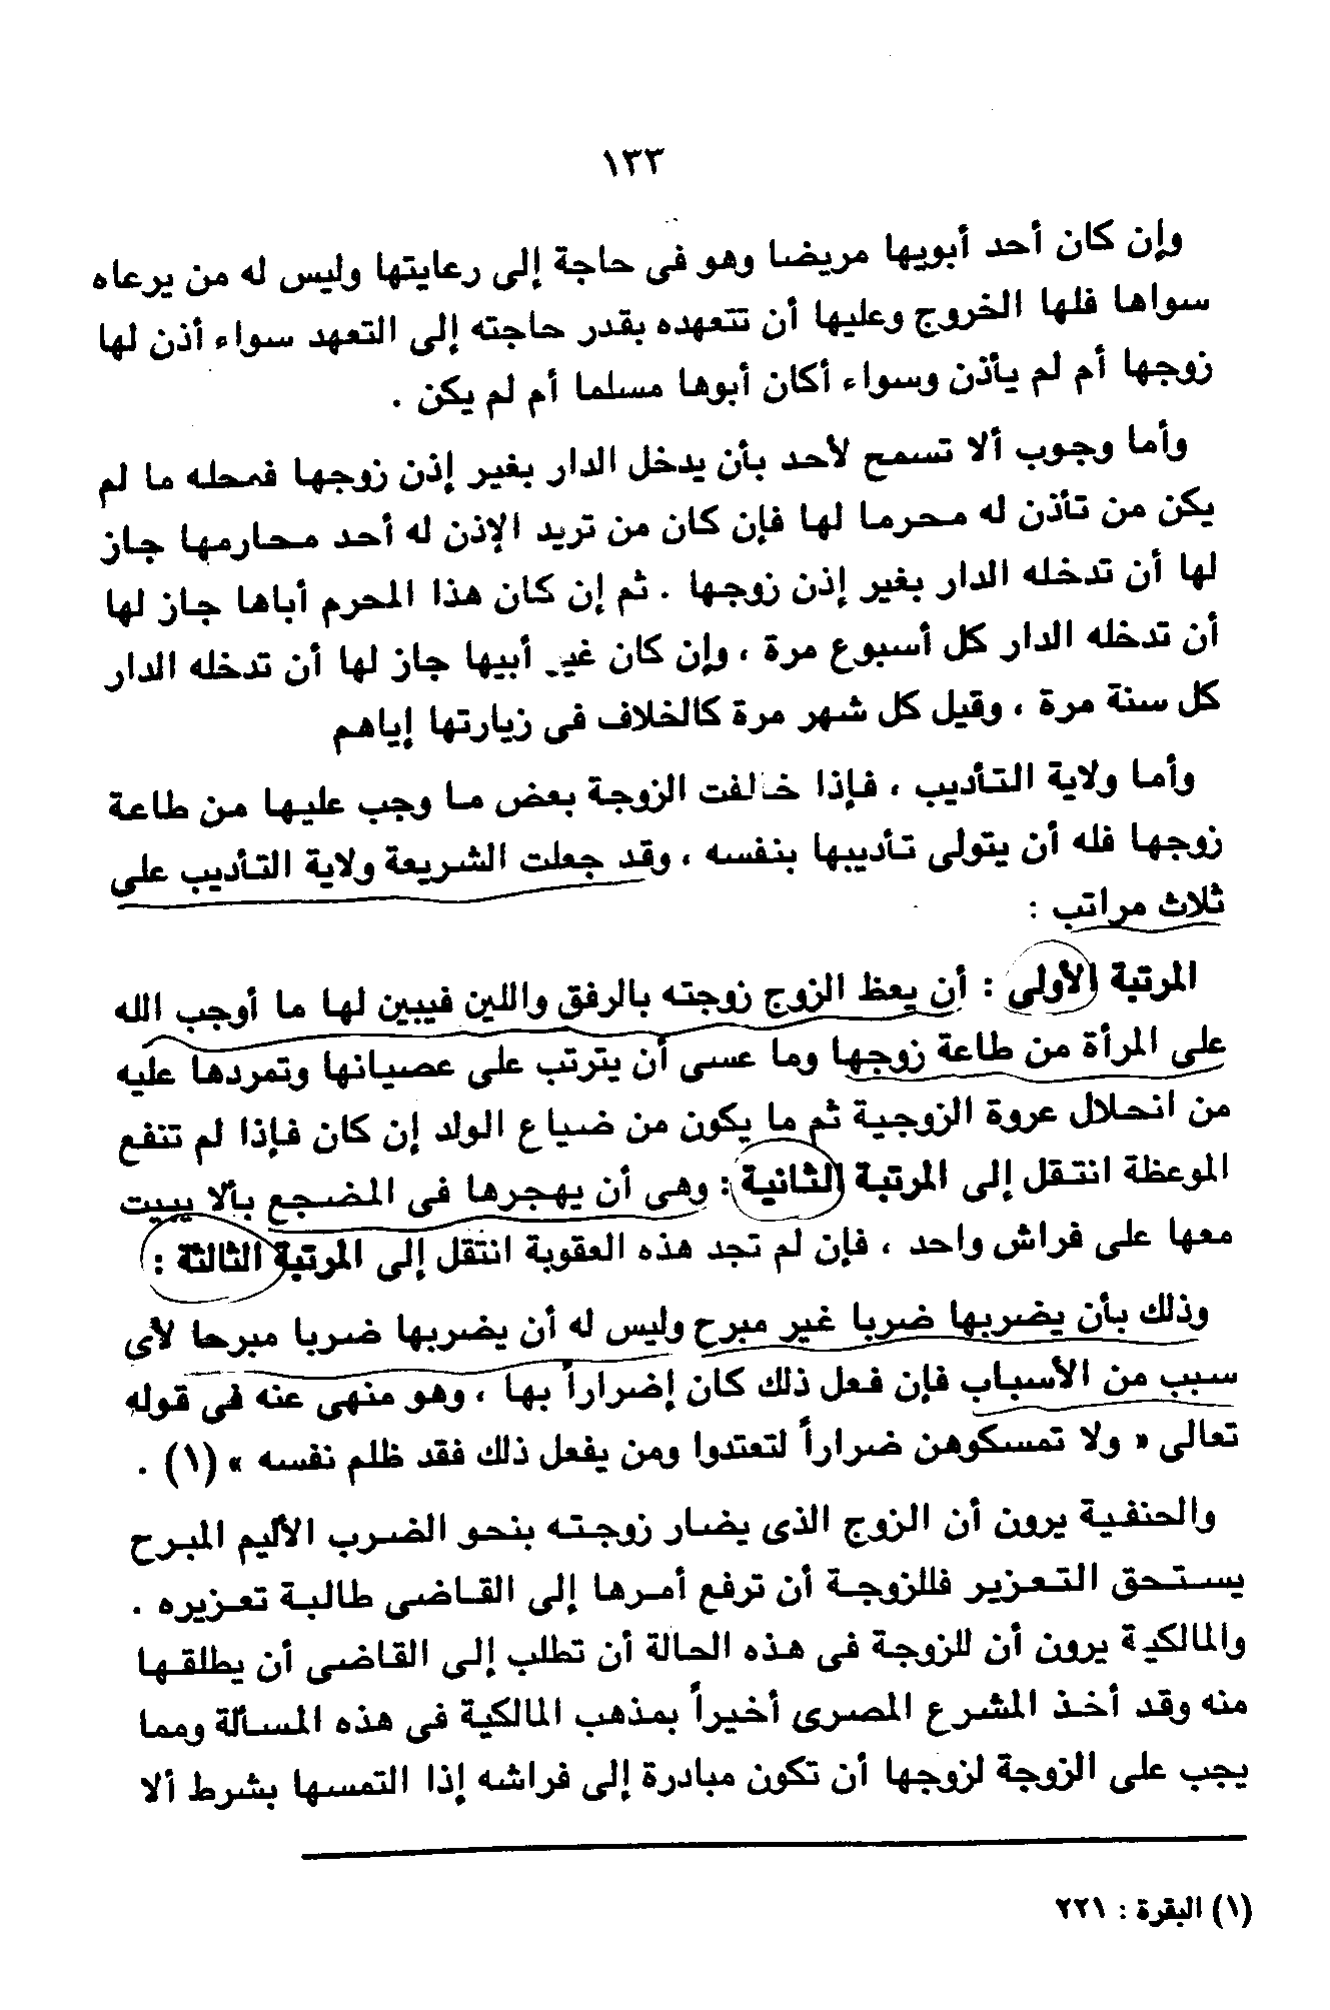 ١٣٣
وإن كان أحد أبويها مريضا وهو فى حاجة إلى رعايتها وليس له من يرعاه
سواها فلها الخروج وعليها أن تتعهده بقدر حاجته إلى التعهد سواء أذن لها
زوجها أم لم يأذن وسواء أكان أبوها مسلما أم لم يكن .
وأما وجوب ألا تسمح لأحد بأن يدخل الدار بغير إذن زوجها فمحله ما لم
يكن من تأذن له محرما لها فإن كان من تريد الإذن له أحد محارمها جاز
لها أن تدخله الدار بغير إذن زوجها . ثم إن كان هذا المحرم أباها جاز لها
أن تدخله الدار كل أسبوع مرة ، وإن كان غير أبيها جاز لها أن تدخله الدار
كل سنة مرة ، وقيل كل شهر مرة كالخلاف فى زيارتها إياهم
وأما ولاية التأديب ، فإذا خالفت الزوجة بعض ما وجب عليها من طاعة
زوجها فله أن يتولى تأديبها بنفسه ، وقد جعلت الشريعة ولاية التأديب على
ثلاث مراتب :
المرتبة الأولى : أن يعظ الزوج زوجته بالرفق واللين فيبين لها ما أوجب الله
على المرأة من طاعة زوجها وما عسى أن يترتب على عصيانها وتمردها عليه
من انحلال عروة الزوجية ثم ما يكون من ضياع الولد إن كان فإذا لم تنفع
الموعظة انتقل إلى المرتبة الثانية : وهى أن يهجرها فى المضجع بألا يبيت
معها على فراش واحد ، فإن لم تجد هذه العقوبة انتقل إلى المرتبة الثالثة :
وذلك بأن يضربها ضربا غير مبرح وليس له أن يضربها ضربا مبرحا لأى
سبب من الأسباب فإن فعل ذلك كان إضراراً بها ، وهو منهى عنه فى قوله
تعالى « ولا تمسكوهن ضراراً لتعتدوا ومن يفعل ذلك فقد ظلم نفسه » (١) .
والحنفية يرون أن الزوج الذى يضار زوجته بنحو الضرب الأليم المبرح
يستحق التعزير فللزوجة أن ترفع أمرها إلى القاضى طالبة تعزيره .
والمالكية يرون أن للزوجة فى هذه الحالة أن تطلب إلى القاضى أن يطلقها
منه وقد أخذ المشرع المصرى أخيراً بمذهب المالكية فى هذه المسألة ومما
يجب على الزوجة لزوجها أن تكون مبادرة إلى فراشه إذا التمسها بشرط ألا
(١) البقرة : ٢٢١